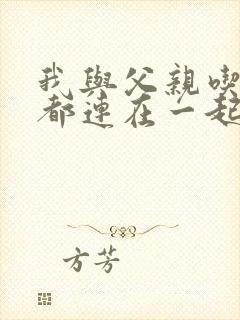 我與父親喫
都連在一起
方芳